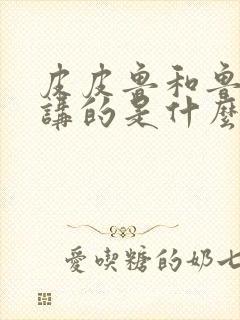 皮皮魯和魯
講的是什麼
愛喫糖的奶七